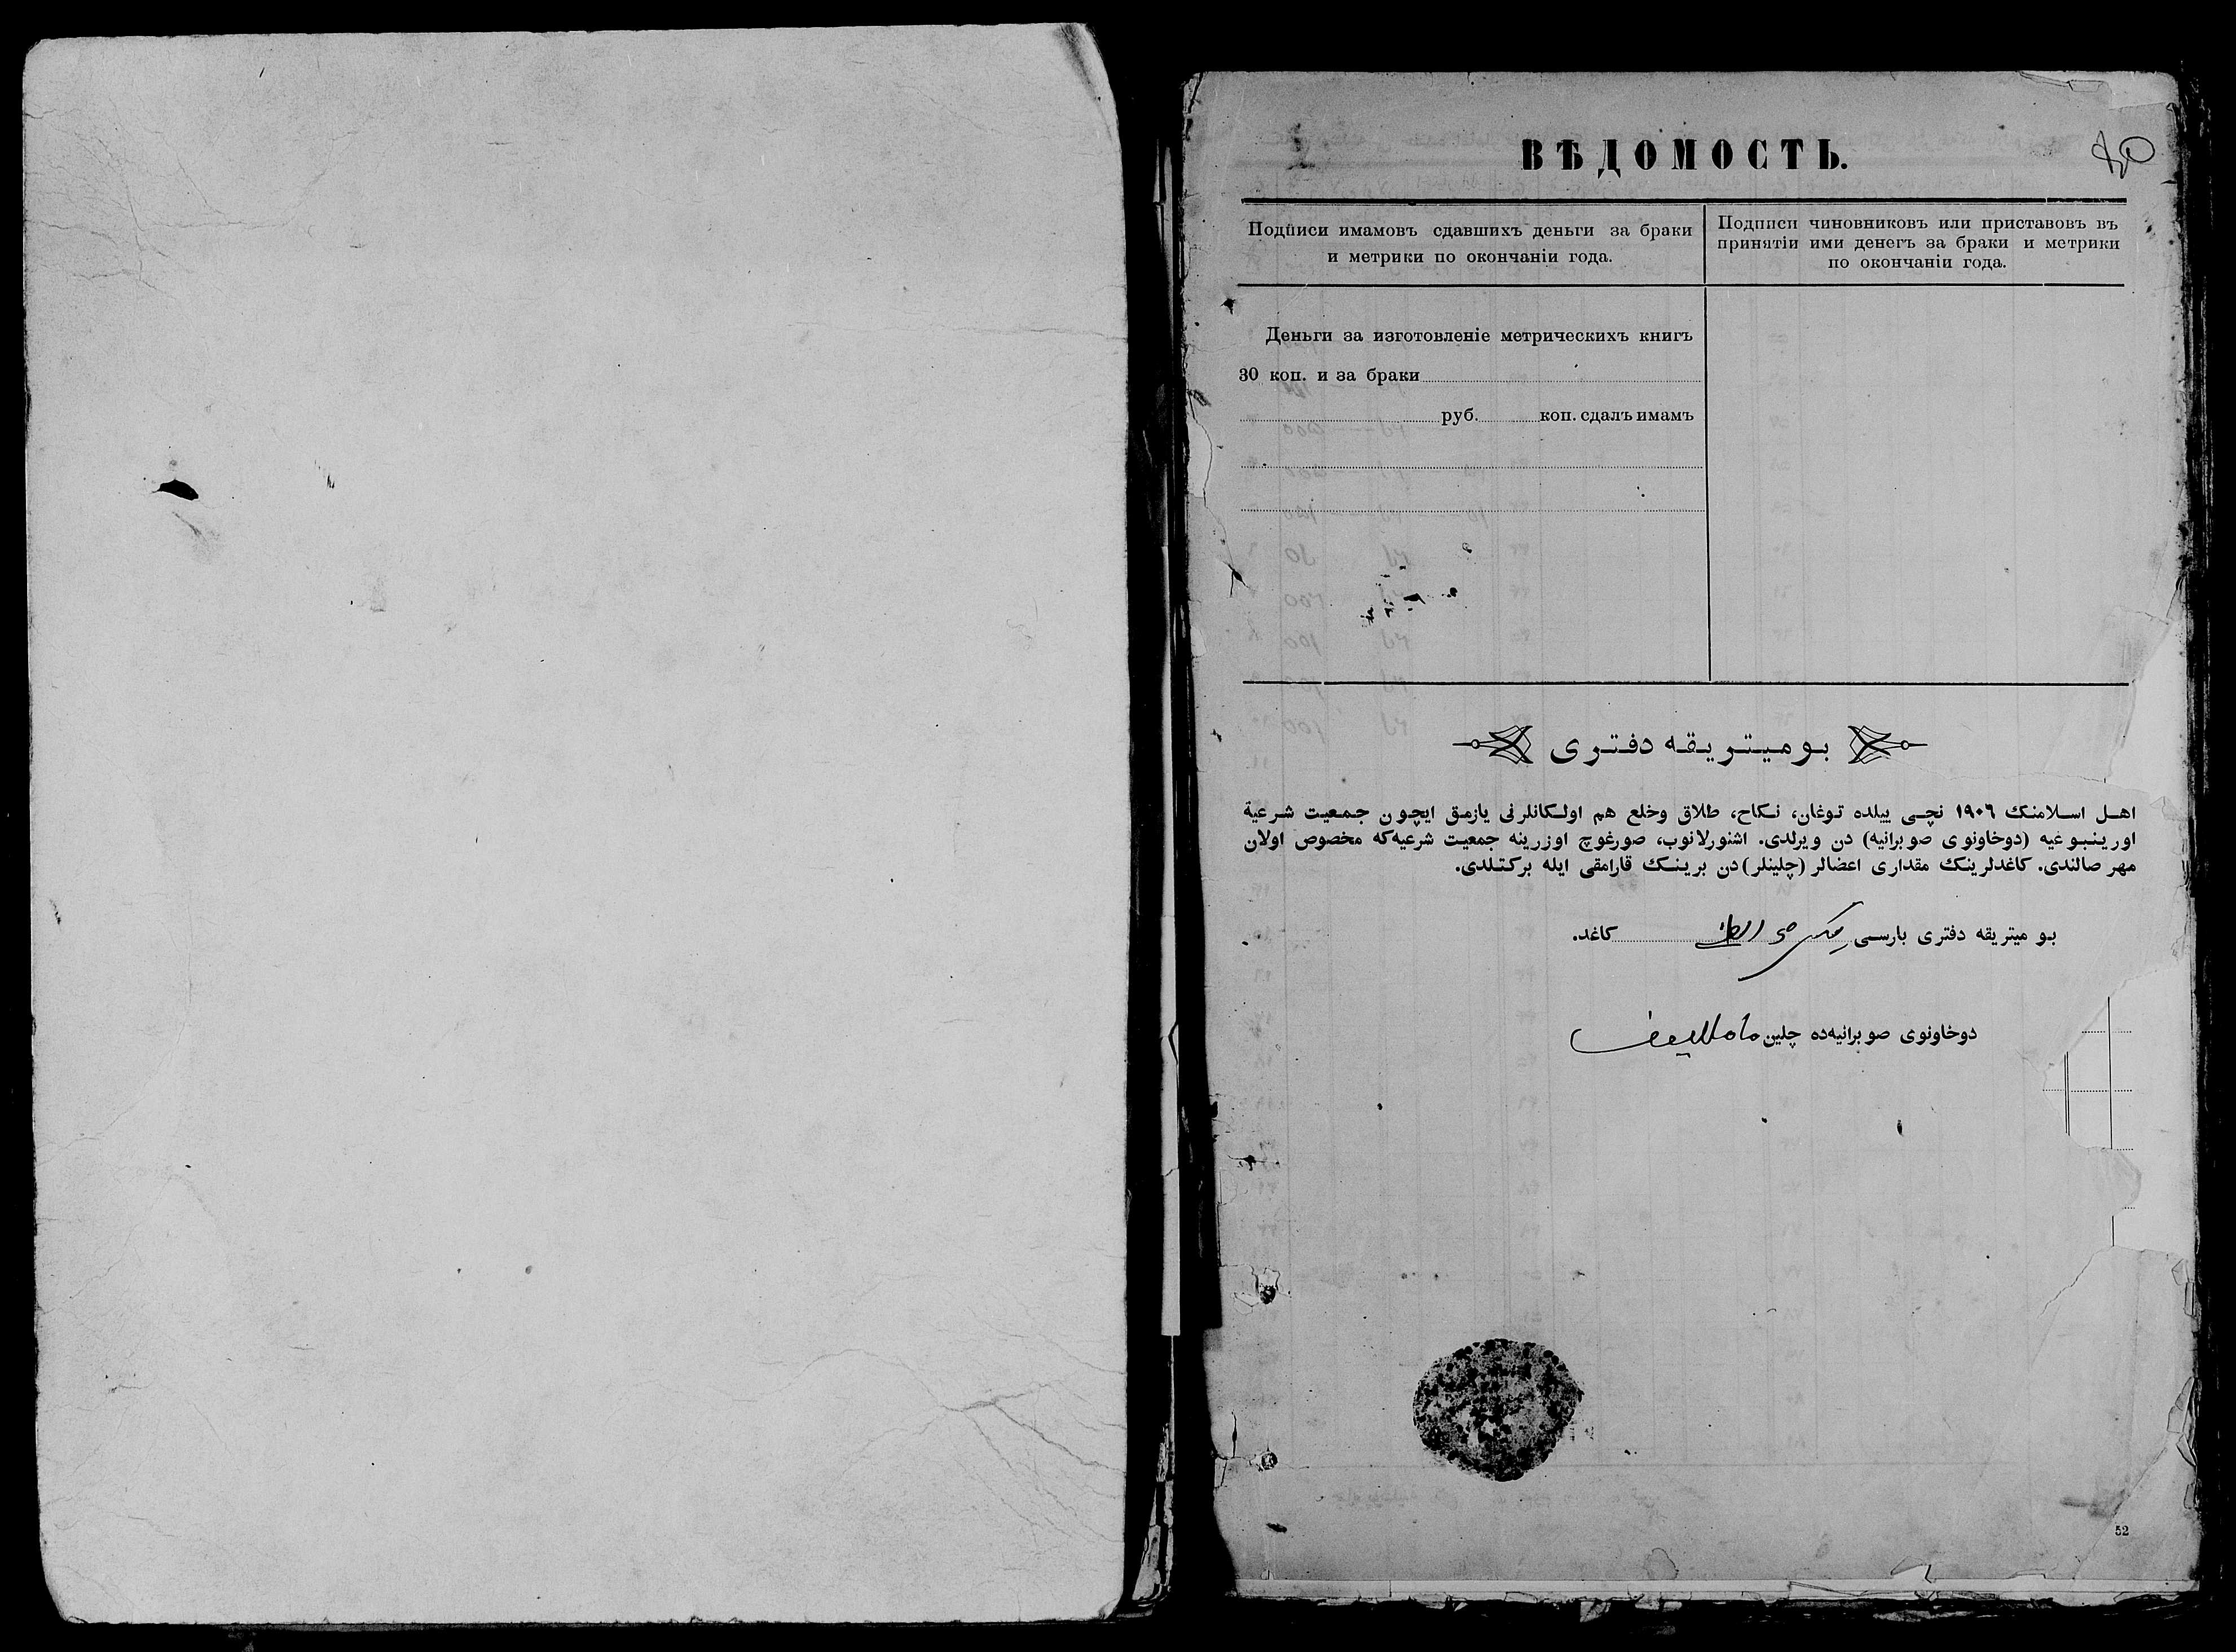 ВѢДОМОСТЬ.
Подписи имамовъ сдавшихъ деньги за браки
и метрики по окончаніи года.
Подписи чиновниковъ или приставовъ въ
принятіи ими денегъ за браки и метрики
по окончаніи года.
Деньги за изготовленіе метрическихъ книгъ
30 коп. и за браки
руб. коп. сдалъ имамъ
بو ميتريقه دفترى
اهل اسلامنك ١٩٠٦ نچى ييلده توغان، نكاح، طلاق وخلع هم اولكانلرنى يازمق ايچون جمعيت شرعية
اورينبوغيه (دوخاونوى صوبرانيه) دن ويرلدى. اشنورلانوب، صورغوچ اوزرينه جمعيت شرعيه‌كه مخصوص اولان
مهر صالندى. كاغدلرينك مقدارى اعضالر (چلينلر) دن برينك قارامقى ايله بركتلدى.
بو ميتريقه دفترى بارسى كاغد.
دوخاونوى صوبرانيه‌ده چلين
52